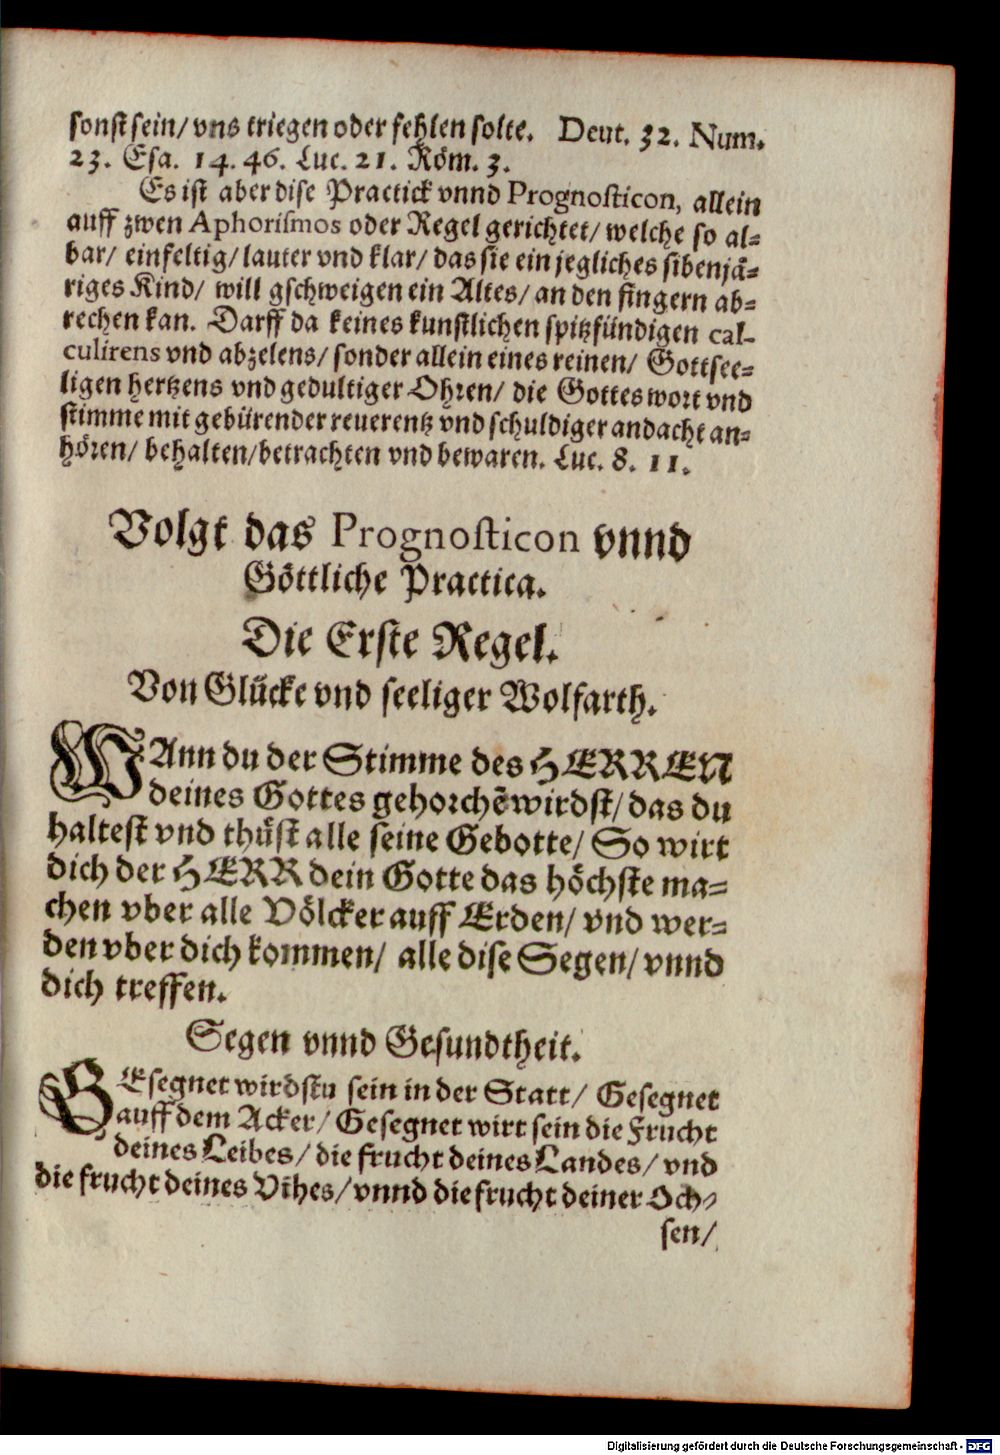 sonst sein/ vns triegen oder fehlen solte. Deut. 32. Num.
23. Esa. 14. 46. Luc. 21. Röm. 3.
Es ist aber dise Practick vnnd Prognosticon, allein
auff zwen Aphorismos oder Regel gerichtet/ welche so al-
bar/ einfeltig/ lauter vnd klar/ das sie ein jegliches sibenjä-
riges Kind/ will gschweigen ein Altes/ an den fingern ab-
rechen kan. Darff da keines kunstlichen spitzfündigen cal-
culirens vnd abzelens/ sonder allein eines reinen/ Gottsee-
ligen hertzens vnd gedultiger Ohren/ die Gottes wort vnd
stimme mit gebürender reuerentz vnd schuldiger andacht an-
hören/ behalten/ betrachten vnd bewaren. Luc. 8. 11.
Volgt das Prognosticon vnnd
Göttliche Practica.
Die Erste Regel.
Von Glücke vnd seeliger Wolfarth.
WAnn du der Stimme des HERREN
deines Gottes gehorchē wirdst/ das du
haltest vnd thůst alle seine Gebotte/ So wirt
dich der HERR dein Gotte das höchste ma-
chen vber alle Völcker auff Erden/ vnd wer-
den vber dich kommen/ alle dise Segen/ vnnd
dich treffen.
Segen vnnd Gesundtheit.
GEsegnet wirdstu sein in der Statt/ Gesegnet
auff dem Acker/ Gesegnet wirt sein die Frucht
deines Leibes/ die frucht deines Landes/ vnd
die frucht deines Vihes/ vnnd die frucht deiner Och-
sen/
Digitalisierung gefördert durch die Deutsche Forschungsgemeinschaft - DFG